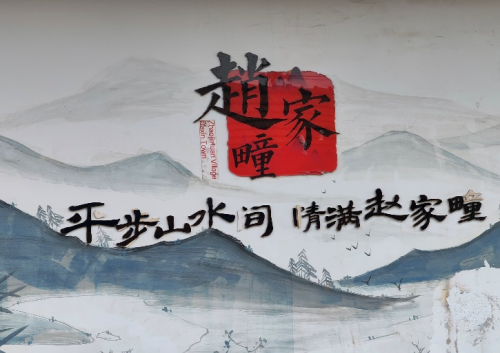 趙家疃
Zhaojiatuan Village
平步山水间 情满赵家疃